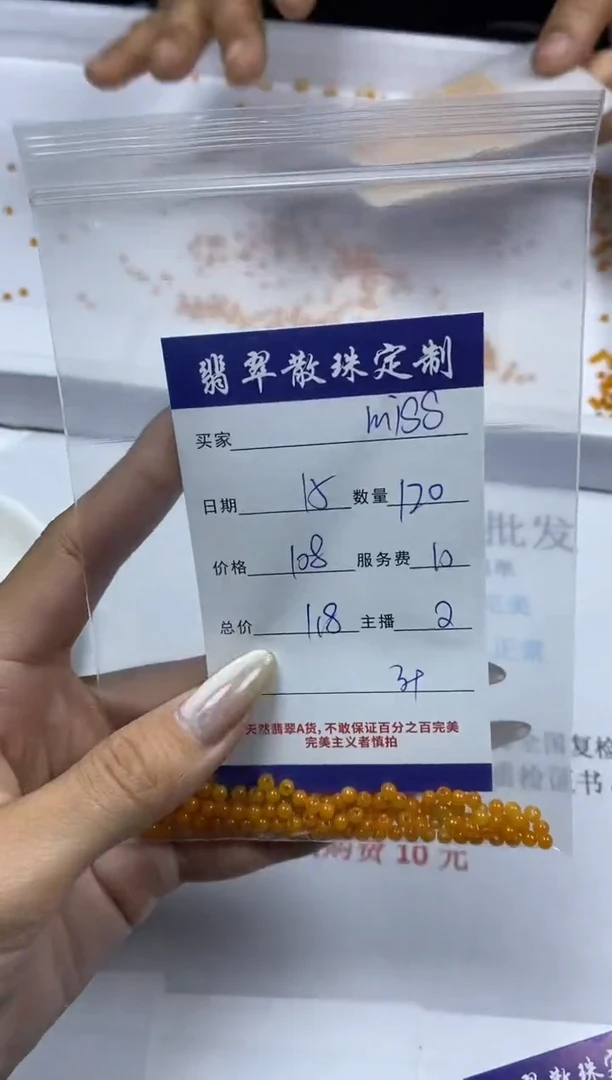 翡翠散珠定制
买家 miSS
日期 15 数量 120
价格 108 服务费 10
总价 118 主播 2
天然翡翠A货，不敢保证百分之百完美
完美主义者慎拍
批发
完美
正常
全国复检
检证书
购费 10 元
翠散珠